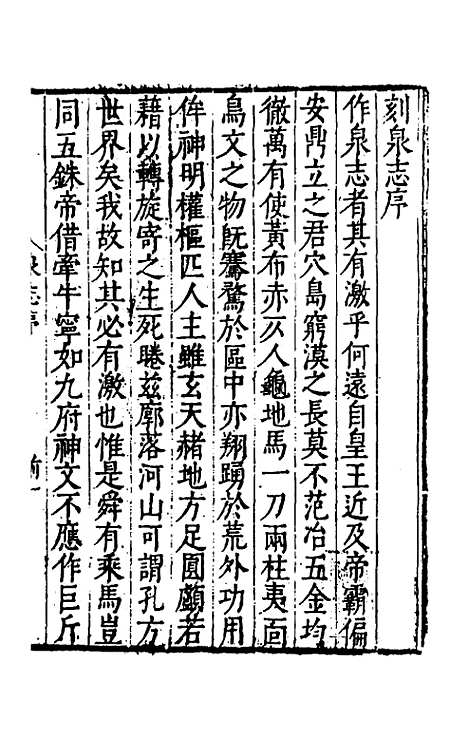 刻泉志序
作泉志者其有激乎何遠自皇王近及帝霸偏
安鼎立之君穴島窮漠之長莫不范冶五金均
徹萬有使黃布赤仄人龜地馬一刀兩柱夷面
鳥文之物旣騫騖於區中亦翔踴於荒外功用
侔神明權樞匹人主雖玄天赭地方足圓顱若
藉以轉旋寄之生死睠茲廓落河山可謂孔方
世界矣我故知其必有激也惟是舜有乘馬豈
同五銖帝借牽牛寧如九府神文不應作巨斤
泉志序